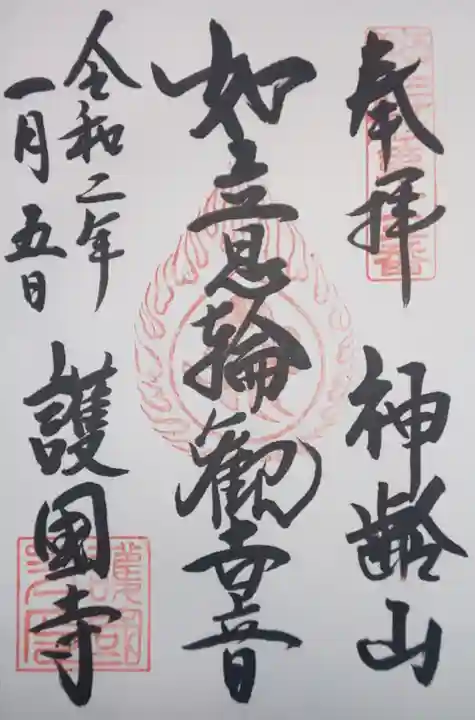 奉拝
神齢山
如意輪観世音
令和二年
一月五日
護國寺